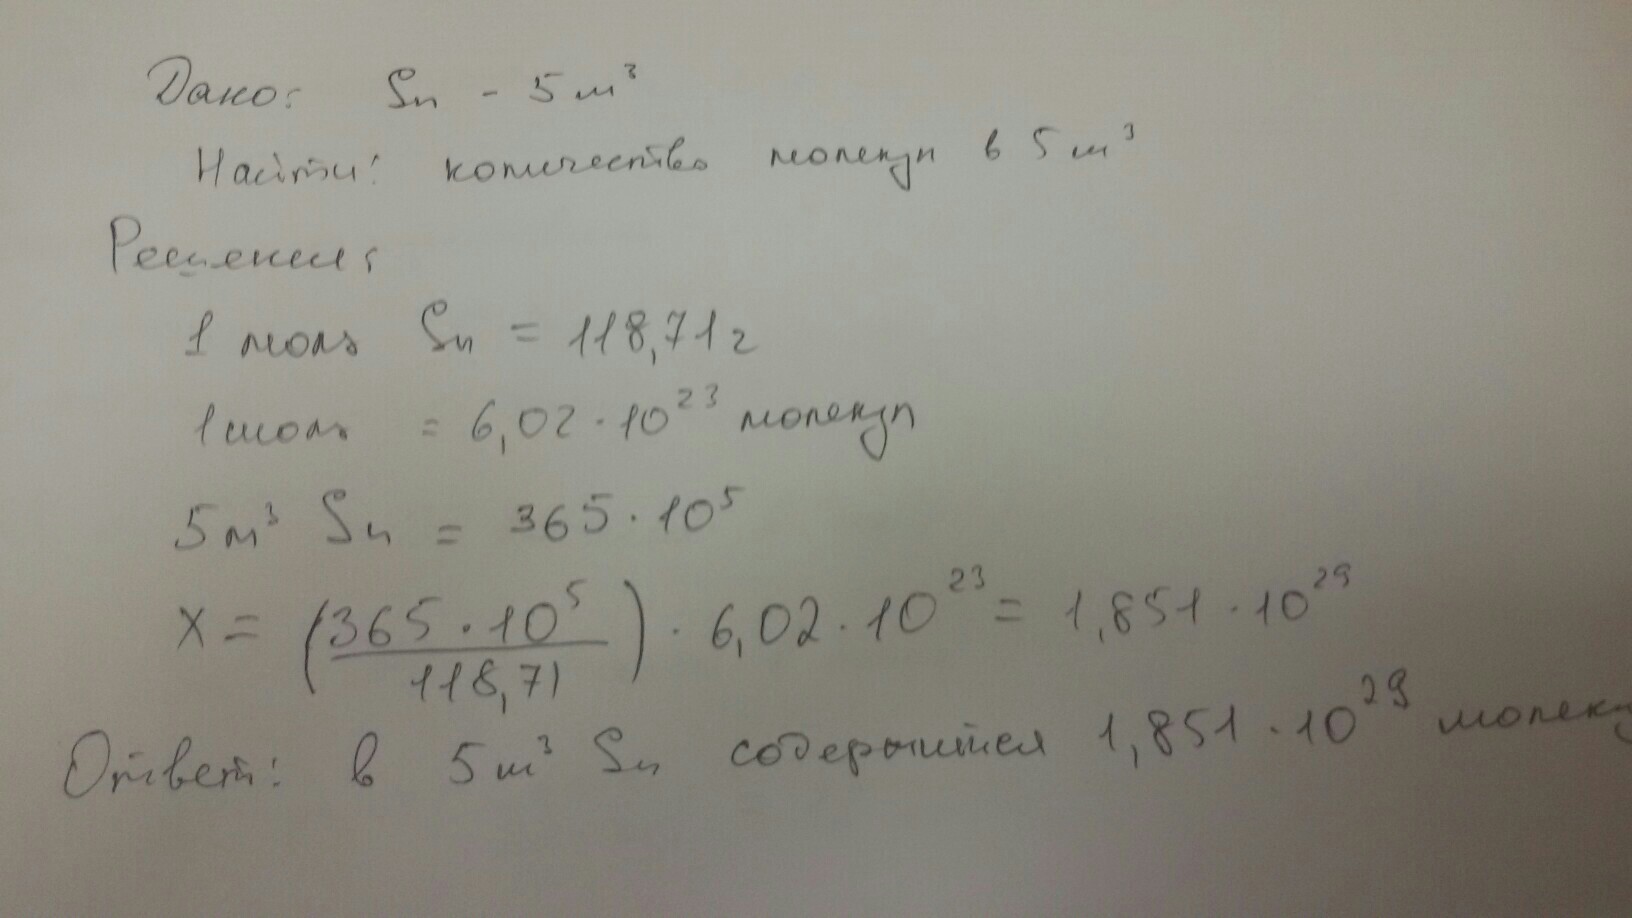 Дано: Sn - 5 м³
Найти: количество молекул в 5 м³
Решение:
1 моль Sn = 118,71 г
1 моль = 6,02 · 10²³ молекул
5 м³ Sn = 365 · 10⁵
x = (365 · 10⁵ / 118,71) · 6,02 · 10²³ = 1,851 · 10²⁹
Ответ: в 5 м³ Sn содержится 1,851 · 10²⁹ молеку